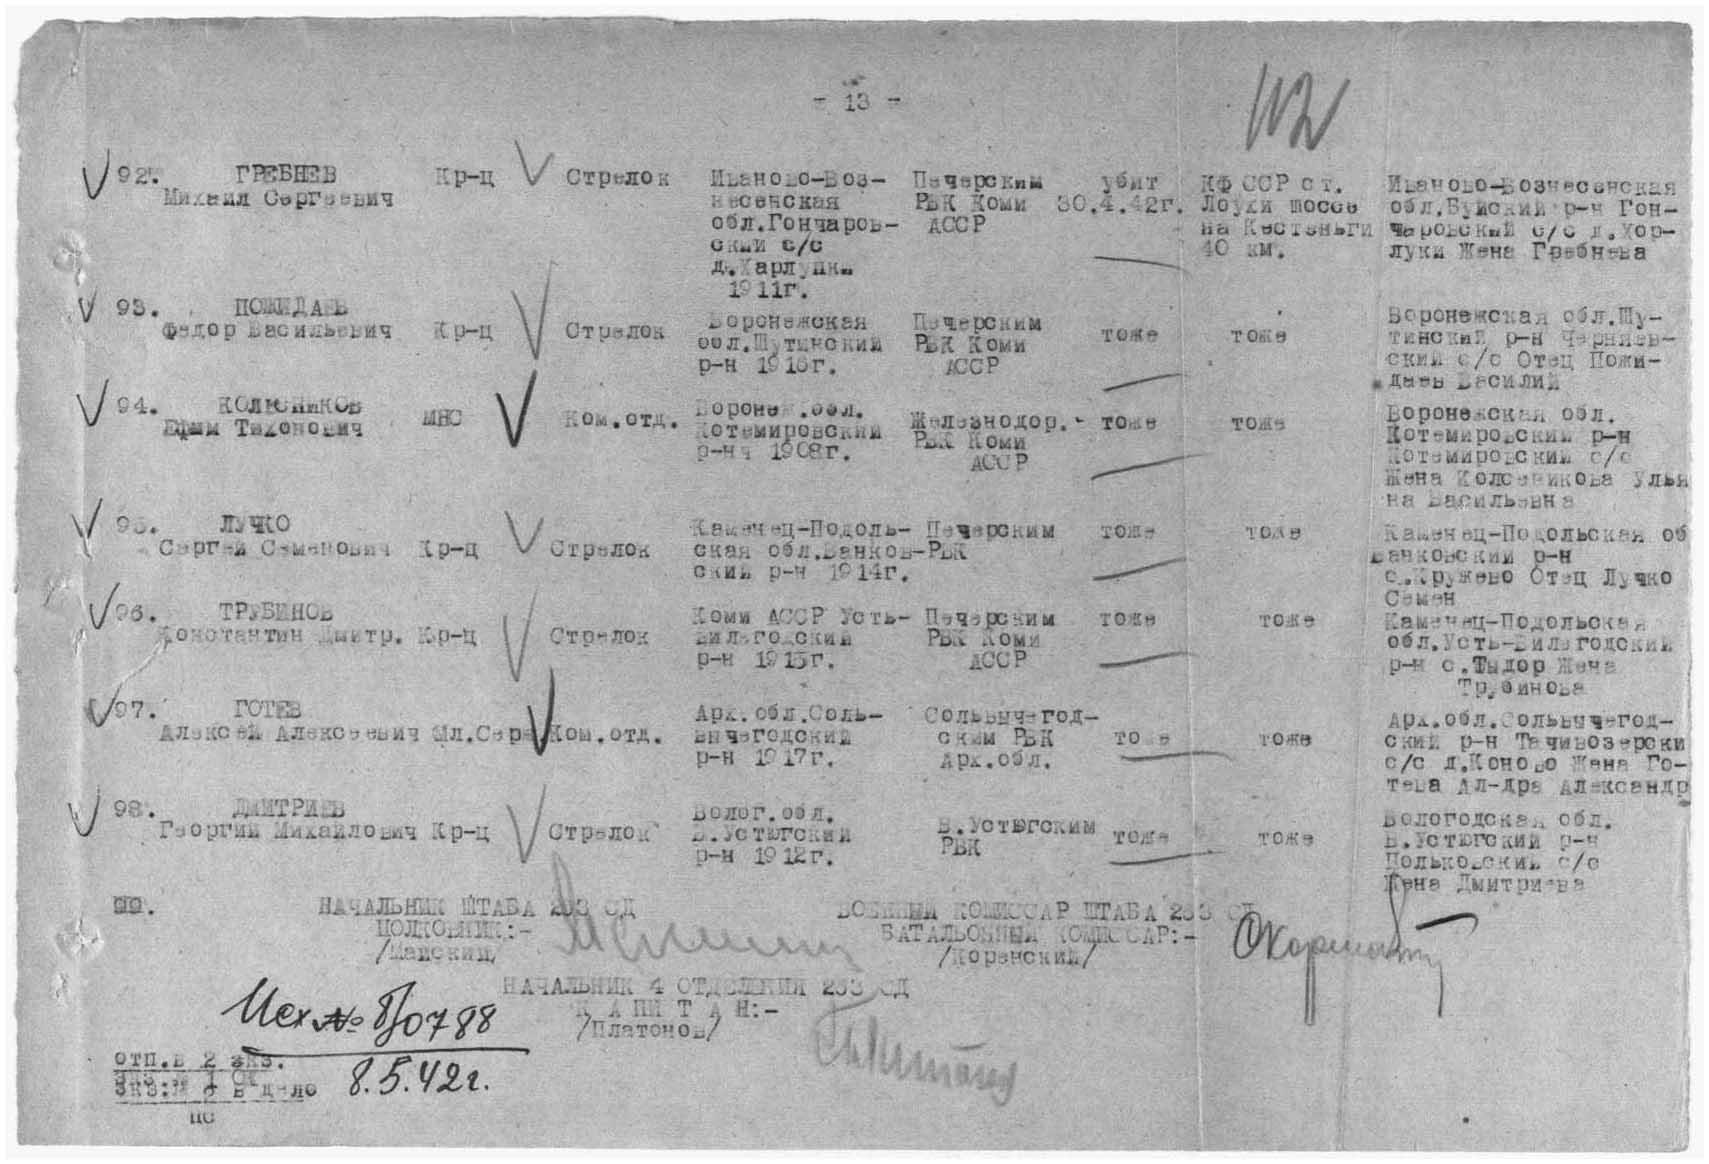 - 13 -
112
92. ГРЕБНЕВ Михаил Сергеевич Кр-ц Стрелок Иваново-Воз-
несенская
обл.Гончаров-
ский с/с
д.Харлупки
1911г.
Печерским
РВК Коми
АССР
убит
30.4.42г.
КФ ССР ст.
Лоухи шоссе
на Кестеньги
40 км.
Иваново-Вознесенская
обл.Буйский р-н Гон-
чаровский с/с д.Хор-
луки Жена Гребнева
93. ПОЖИДАЕВ
Федор Васильевич Кр-ц Стрелок
Воронежская
обл.Шутинский
р-н 1916г.
Печерским
РВК Коми
АССР
тоже
тоже
Воронежская обл.Шу-
тинский р-н Черняев-
ский с/с Отец Пожи-
даев Василий
94. КОЛЕСНИКОВ
Ефим Тихонович МНС Ком.отд.
Воронеж.обл.
Котемировский
р-н 1908г.
Железнодор.-
РВК Коми
АССР
тоже
тоже
Воронежская обл.
Котемировский р-н
Котемировский с/с
Жена Колесникова Улья
на Васильевна
95. ЛУЧКО
Сергей Семенович Кр-ц Стрелок
Каменец-Подоль-
ская обл.Банков-
ский р-н 1914г.
Печерским
РВК
тоже
тоже
Каменец-Подольская об
Банковский р-н
с.Кружево Отец Лучко
Семен
96. ТРУБИНОВ
Константин Дмитр. Кр-ц Стрелок
Коми АССР Усть-
Вилегодский
р-н 1913г.
Печерским
РВК Коми
АССР
тоже
тоже
Каменец-Подольская
обл.Усть-Вилегодский
р-н с.Тыдор Жена
Трубинова
97. ГОТЕВ
Алексей Алексеевич Мл.Серж Ком.отд.
Арх.обл.Соль-
вычегодский
р-н 1917г.
Сольвычегод-
ским РВК
Арх.обл.
тоже
тоже
Арх.обл.Сольвычегод-
ский р-н Тачивозерски
с/с д.Коново Жена Го-
тева Ал-дра Александр
98. ДМИТРИЕВ
Георгий Михайлович Кр-ц Стрелок
Волог.обл.
В.Устюгский
р-н 1912г.
В.Устюгским
РВК
тоже
тоже
Вологодская обл.
В.Устюгский р-н
Польковский с/с
Жена Дмитриева
99.
НАЧАЛЬНИК ШТАБА 263 СД
ПОЛКОВНИК:-
/Майский/
ВОЕННЫЙ КОМИССАР ШТАБА 263 СД
БАТАЛЬОННЫЙ КОМИССАР:-
/Коренский/
НАЧАЛЬНИК 4 ОТДЕЛЕНИЯ 263 СД
К А П И Т А Н:-
/Платонов/
Исх № 8/0788
8.5.42г.
отп.в 2 экз.
в дело
пс